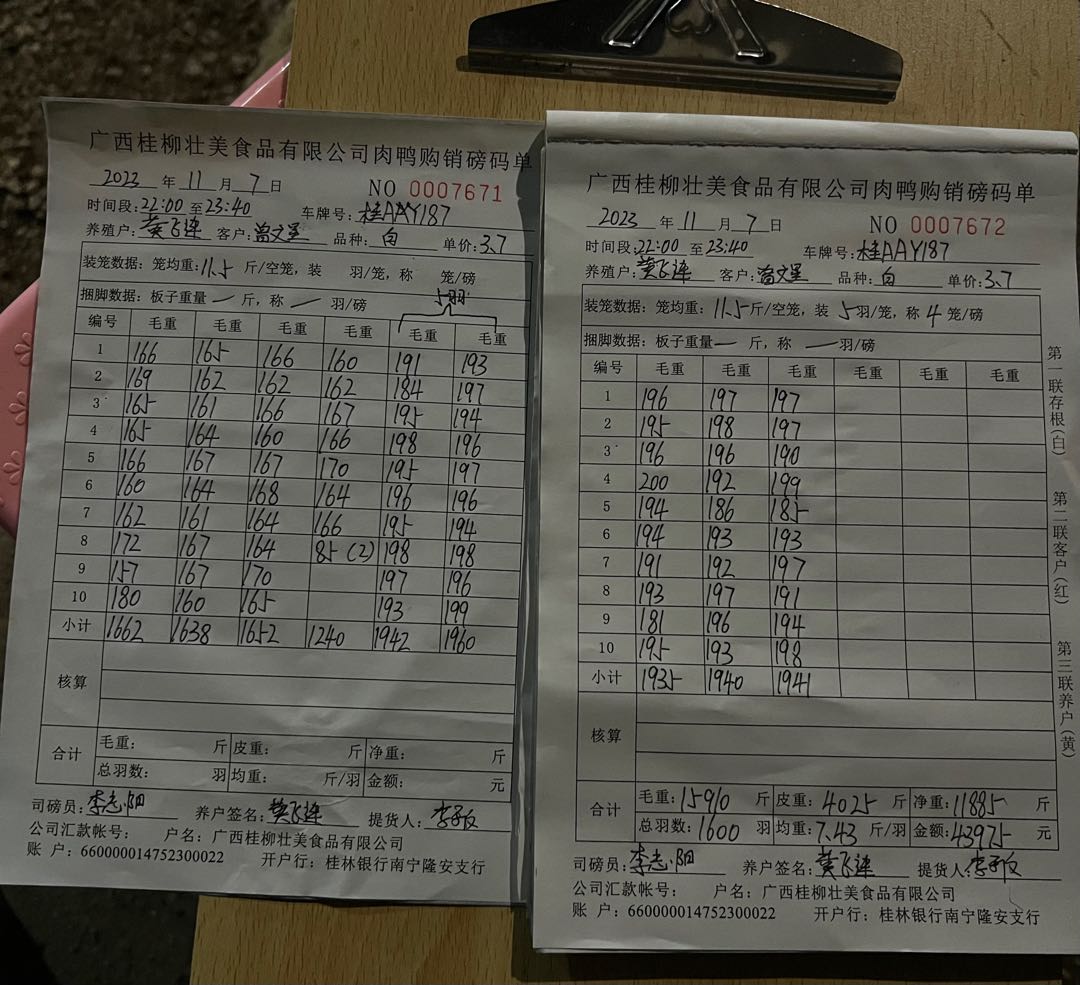 广西桂柳壮美食品有限公司肉鸭购销磅码单
2023 年 11 月 7 日 NO 0007671
时间段:22:00 至 23:40 车牌号:桂AAY187
养殖户:黄飞连 客户: 品种:白 单价:3.7
装笼数据:笼均重:11.5 斤/空笼,装 羽/笼,称 笼/磅
捆脚数据:板子重量 — 斤,称 — 羽/磅 5羽
编号 毛重 毛重 毛重 毛重 毛重 毛重
1 166 165 166 160 191 193
2 169 162 162 162 184 197
3 165 161 166 167 195 194
4 165 164 160 166 198 196
5 166 167 167 170 195 197
6 160 164 168 164 196 196
7 162 161 164 166 195 194
8 172 167 164 85(2) 198 198
9 157 167 170 197 196
10 180 160 165 193 199
小计 1662 1638 1652 1240 1942 1960
核算
合计 毛重: 斤 皮重: 斤 净重: 斤
总羽数: 羽 均重: 斤/羽 金额: 元
司磅员:李志阳 养户签名:黄飞连 提货人:
公司汇款帐号: 户名:广西桂柳壮美食品有限公司
账 户:660000014752300022 开户行:桂林银行南宁隆安支行
广西桂柳壮美食品有限公司肉鸭购销磅码单
2023 年 11 月 7 日 NO 0007672
时间段:22:00 至 23:40 车牌号:桂AAY187
养殖户:黄飞连 客户: 品种:白 单价:3.7
装笼数据:笼均重:11.5斤/空笼,装 5羽/笼,称 4 笼/磅
捆脚数据:板子重量 — 斤,称 — 羽/磅
编号 毛重 毛重 毛重 毛重 毛重 毛重
1 196 197 197
2 195 198 197
3 196 196 190
4 200 192 199
5 194 186 185
6 194 193 193
7 191 192 197
8 193 197 191
9 181 196 194
10 195 193 198
小计 1935 1940 1941
核算
合计 毛重:15910 斤 皮重:4025 斤 净重:11885 斤
总羽数:1600 羽 均重:7.43 斤/羽 金额:43975 元
司磅员:李志阳 养户签名:黄飞连 提货人:
公司汇款帐号: 户名:广西桂柳壮美食品有限公司
账 户:660000014752300022 开户行:桂林银行南宁隆安支行
第一联存根(白)
第二联客户(红)
第三联养户(黄)